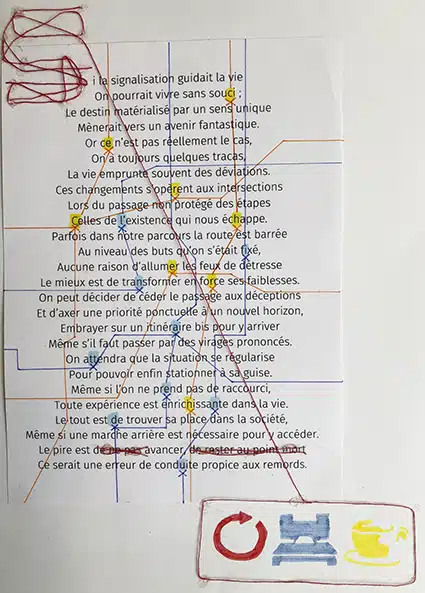 Si la signalisation guidait la vie
On pourrait vivre sans souci ;
Le destin matérialisé par un sens unique
Mènerait vers un avenir fantastique.
Or ce n'est pas réellement le cas,
On a toujours quelques tracas,
La vie emprunte souvent des déviations.
Ces changements s'opèrent aux intersections
Lors du passage non protégé des étapes
Celles de l'existence qui nous échappe.
Parfois dans notre parcours la route est barrée
Au niveau des buts qu'on s'était fixé,
Aucune raison d'allumer les feux de détresse
Le mieux est de transformer en force ses faiblesses.
On peut décider de céder le passage aux déceptions
Et d'axer une priorité ponctuelle à un nouvel horizon,
Embrayer sur un itinéraire bis pour y arriver
Même s'il faut passer par des virages prononcés.
On attendra que la situation se régularise
Pour pouvoir enfin stationner à sa guise.
Même si l'on ne prend pas de raccourci,
Toute expérience est enrichissante dans la vie.
Le tout est de trouver sa place dans la société,
Même si une marche arrière est nécessaire pour y accéder.
Le pire est de ne pas avancer, de rester au point mort
Ce serait une erreur de conduite propice aux remords.